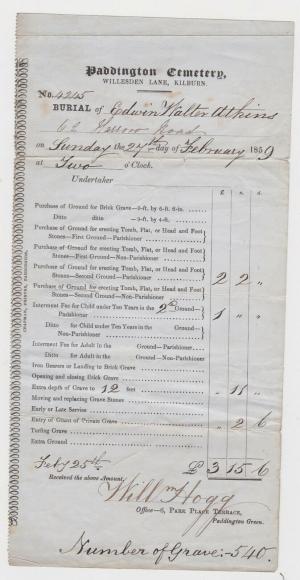 Paddington Cemetery,
WILLESDEN LANE, KILBURN.
No. 4245
BURIAL of Edwin Walter Atkins
62 Harrow Road
on Sunday the 27th day of February 1859
at Two o'Clock.
Undertaker
£ s. d.
Purchase of Ground for Brick Grave—9-ft. by 6-ft. 6-in.
Ditto ditto —9-ft. by 4-ft.
Purchase of Ground for erecting Tomb, Flat, or Head and Foot
Stones—First Ground—Parishioner
Purchase of Ground for erecting Tomb, Flat, or Head and Foot
Stones—First Ground—Non-Parishioner
Purchase of Ground for erecting Tomb, Flat, or Head and Foot
Stones—Second Ground—Parishioner 2 2 "
Purchase of Ground for erecting Tomb, Flat, or Head and Foot
Stones—Second Ground—Non-Parishioner
Interment Fee for Child under Ten Years in the 2nd Ground—
Parishioner 1 " "
Ditto for Child under Ten Years in the Ground—
Non-Parishioner
Interment Fee for Adult in the Ground—Parishioner
Ditto for Adult in the Ground—Non-Parishioner
Iron Bearers or Landing to Brick Grave
Opening and closing Brick Grave
Extra depth of Grave to 12 feet
Moving and replacing Grave Stones
Early or Late Service
Entry of Grant of Private Grave " 2 6
Turfing Grave
Extra Ground
Feby 25th £ 3 15 6
Received the above Amount,
Willm Hogg
Office—6, PARK PLACE TERRACE,
Paddington Green.
Number of Grave:-540.